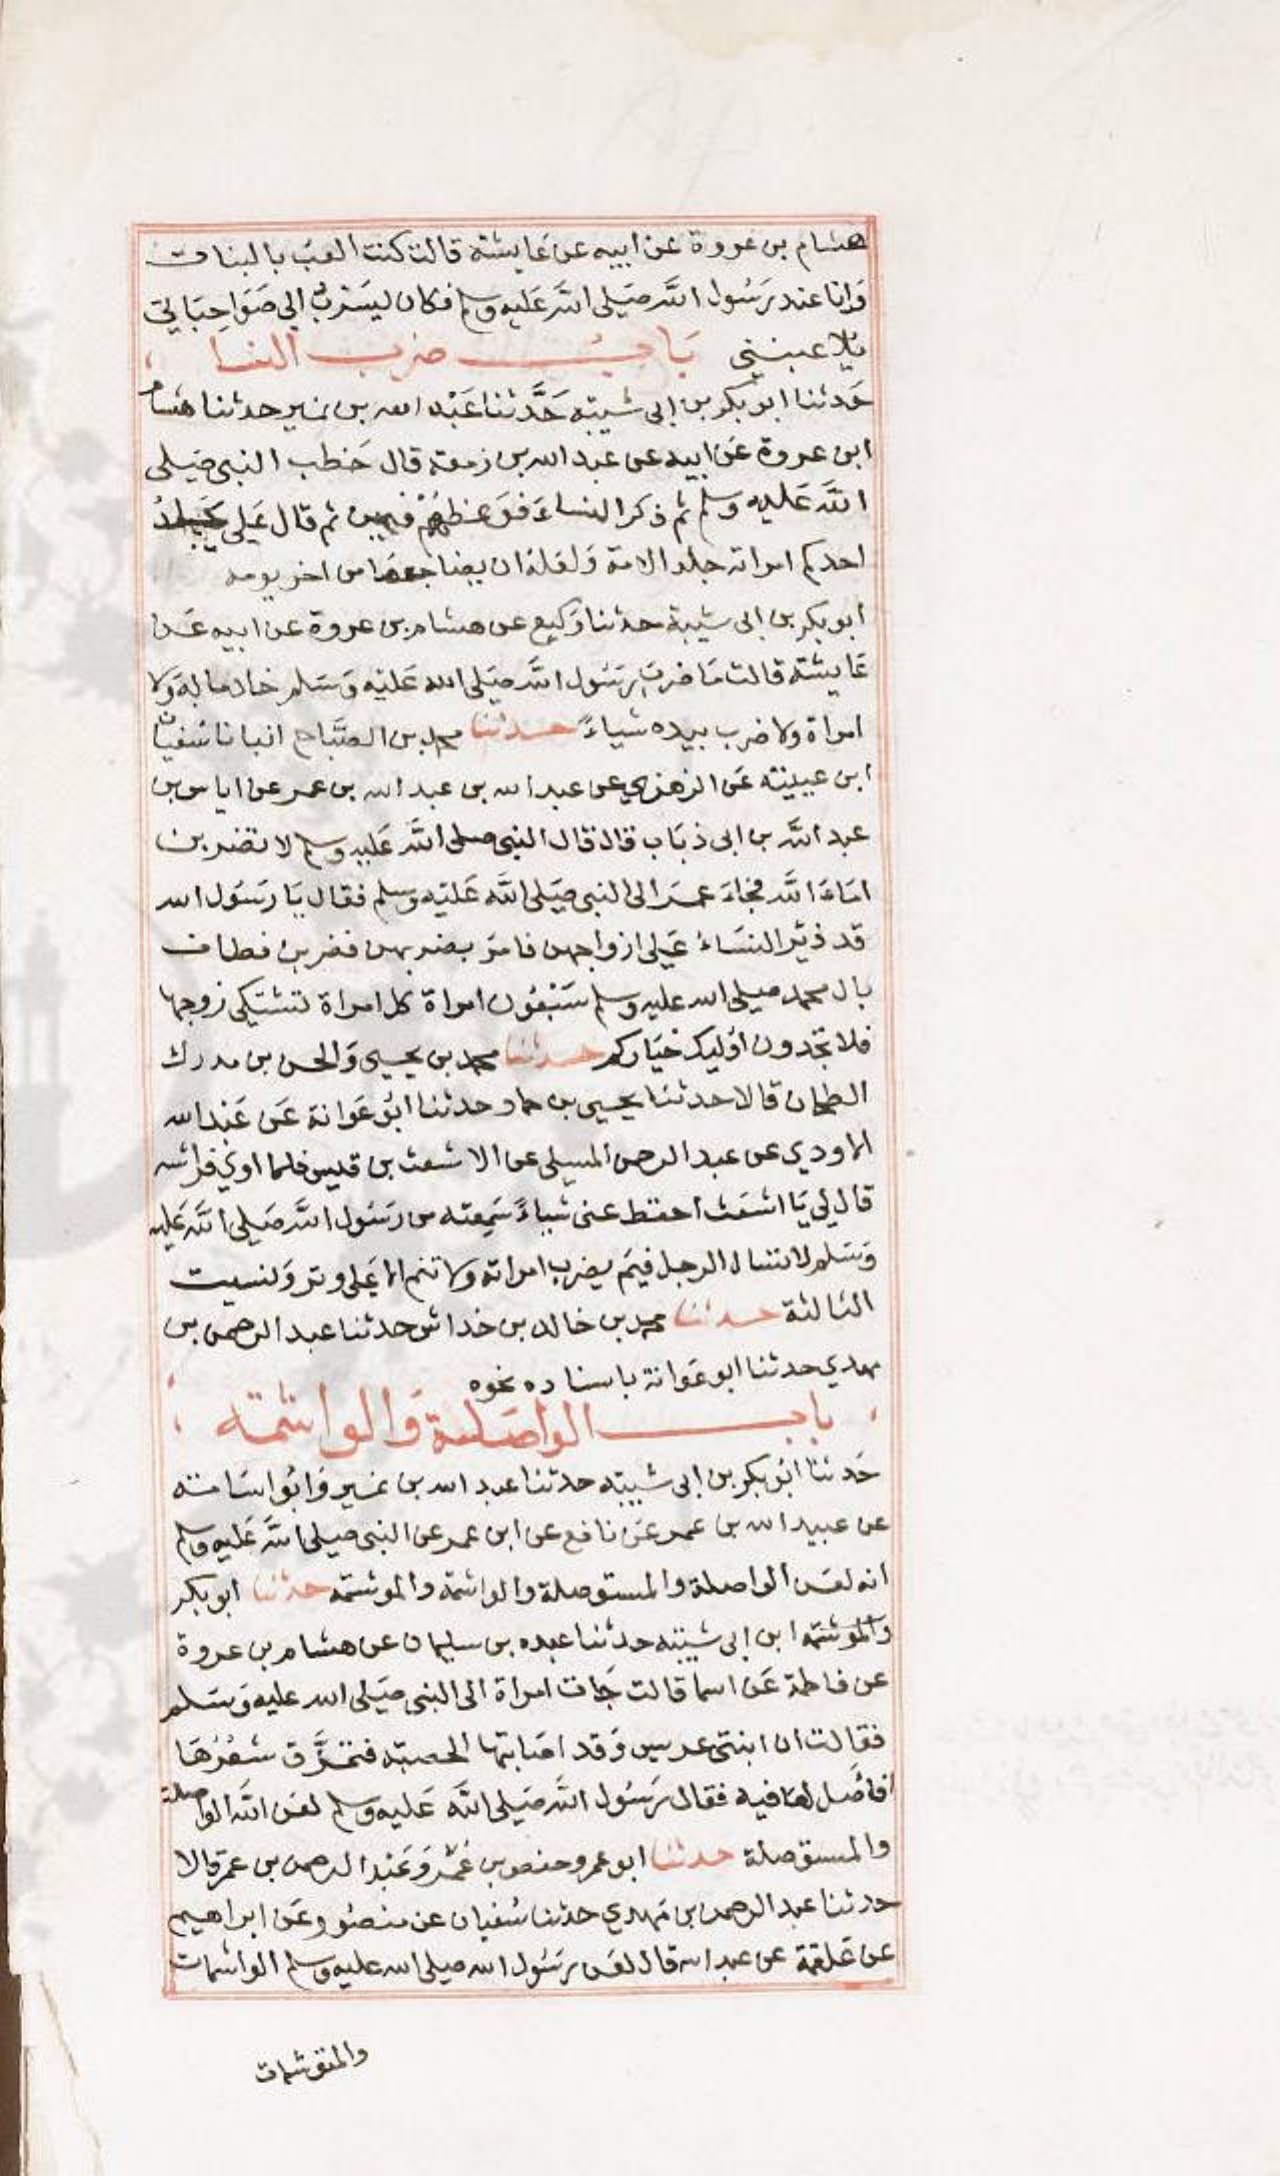 هشام بن عروة عن ابيه عن عايشة قالت كنت العب بالبنات
وانا عند رسول الله صلى الله عليه وسلم فكان يسرب الي صواحباتي
يلاعبنني باب ضرب النسا
حدثنا ابو بكر بن ابي شيبة حدثنا عبد الله بن نمير حدثنا هشام
ابن عروة عن ابيه عن عبد الله بن زمعة قال خطب النبي صلى
الله عليه وسلم ثم ذكر النساء فوعظهم فيهن ثم قال على يجلد
احدكم امراته جلد الامة ولعله ان يضاجعها من اخر يومه
ابو بكر بن ابي شيبة حدثنا وكيع عن هشام بن عروة عن ابيه عن
عايشة قالت ما ضرب رسول الله صلى الله عليه وسلم خادما له ولا
امراة ولا ضرب بيده شياء حدثنا محمد بن الصباح انبانا سفيان
ابن عيينة عن الزهري عن عبد الله بن عبد الله بن عمر عن اياس بن
عبد الله بن ابي ذباب قال قال النبي صلى الله عليه وسلم لا تضربن
اماء الله فجاء عمر الى النبي صلى الله عليه وسلم فقال يا رسول الله
قد ذئر النساء على ازواجهن فامر بضربهن فضربن فطاف
بال محمد صلى الله عليه وسلم سبعون امراة كل امراة تشتكي زوجها
فلا تجدون اوليك خياركم حدثنا محمد بن يحيى والحسن بن مدرك
الطحان قالا حدثنا يحيى بن حماد حدثنا ابو عوانة عن عبد الله
الاودي عن عبد الرحمن المسلي عن الاشعث بن قيس فلما اوي فراشه
قال لي يا اشعث احفظ عني شياء سمعته من رسول الله صلى الله عليه
وسلم لا تسال الرجل فيم يضرب امراته ولا تنم الا على وتر ونسيت
الثالثة حدثنا محمد بن خالد بن خداش حدثنا عبد الرحمن بن
مهدي حدثنا ابو عوانة باسناده نحوه
باب الواصلة والواشمة
حدثنا ابو بكر بن ابي شيبة حدثنا عبد الله بن نمير وابو اسامة
عن عبيد الله بن عمر عن نافع عن ابن عمر عن النبي صلى الله عليه وسلم
انه لعن الواصلة والمستوصلة والواشمة والموشمة حدثنا ابو بكر
والموشمة ابن ابي شيبة حدثنا عبده بن سليمان عن هشام بن عروة
عن فاطمة عن اسما قالت جات امراة الى النبي صلى الله عليه وسلم
فقالت ان ابنتي عريس وقد اصابتها الحصبة فتمرق شعرها
افاصل لها فيه فقال رسول الله صلى الله عليه وسلم لعن الله الواصلة
والمستوصلة حدثنا ابو عمر وحفص بن عمر وعبد الرحمن بن عمر قالا
حدثنا عبد الرحمن بن مهدي حدثنا سفيان عن منصور عن ابراهيم
عن علقمة عن عبد الله قال لعن رسول الله صلى الله عليه وسلم الواشمات
والمتوشمات